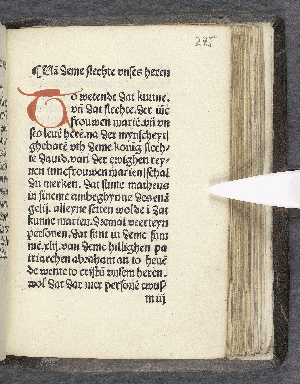 235
¶ Uā deme slechte vnses heren
To wetende dat kunne.
vn̄ dat slechte. der
frouwen marie. vn̄ vn
ses leuē herē. na der mynscheyt
ghebarē vth deme konīg slech-
te dauid. van der ewighen rey-
nen innefrouwen marien schal
du merken. dat sunte matheus
in sineme ambegbynne des euā
gelij. alleyne setten wolde i dat
kunne marien. dremal veerteyn
personen. dat sint in deme sum
me. xlij. van deme hillighen pa
triarchen abraham an to heuē
de wente to cristū vnsem heren.
wol dat dar mer personē
m iij